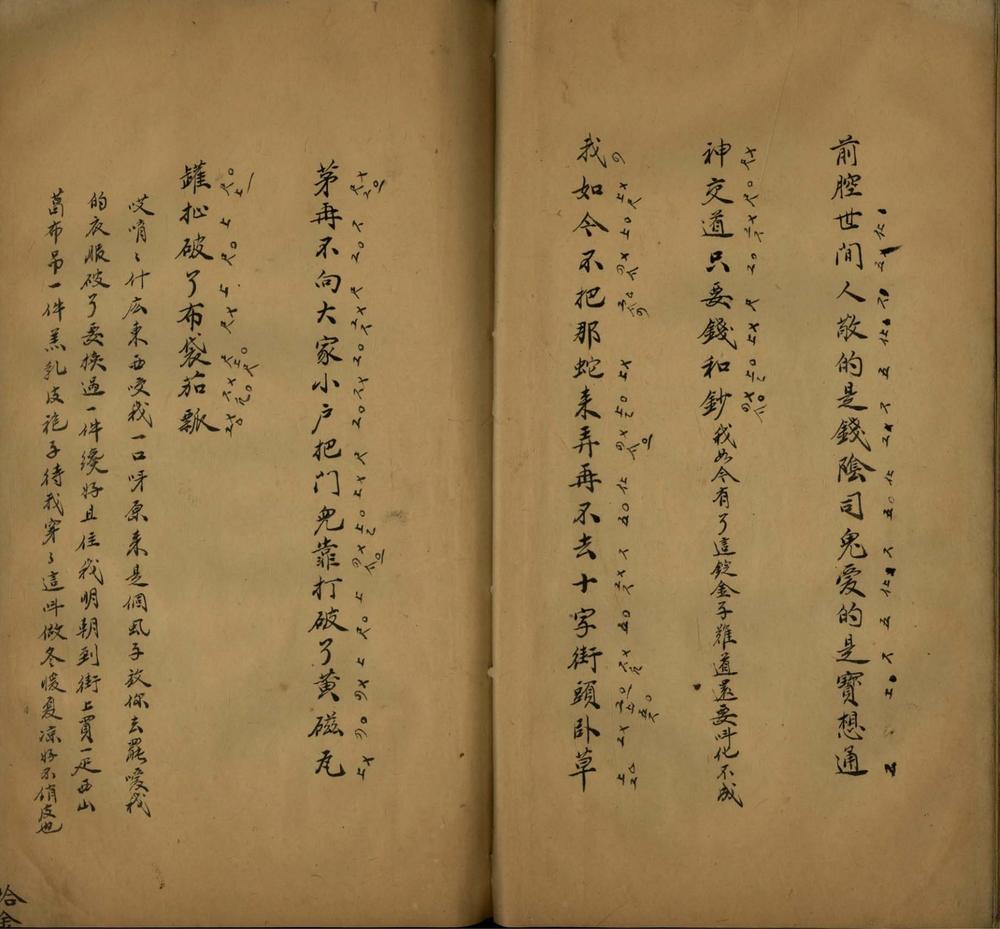 前腔世間人敬的是錢陰司鬼愛的是寶想通
神交道只要錢和鈔我如今有了這錠金子難道還要呌化不成
我如今不把那蛇来弄再不去十字街頭卧草
茅再不向大家小户把门兜靠打破了黄磁瓦
罐扯破了布袋茄瓢
哎喲〻什庅東西咬我一口呀原来是個虱子放你去罷嗳我
的衣服破了要换過一件纔好且住我明朝到街上買一疋西山
葛布吊一件羔乳皮袍子待我穿了這呌做冬暖夏凉好不俏皮也